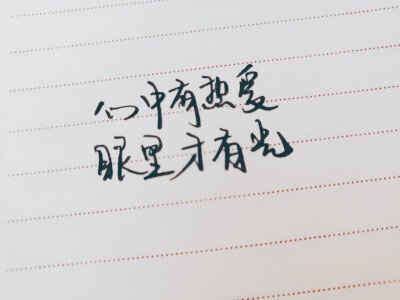 心中有热爱
眼里才有光